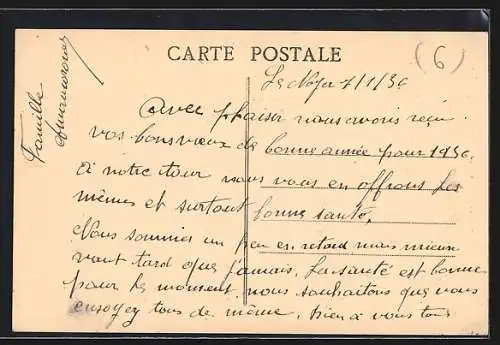 CARTE POSTALE
(6)
Le Noyer 7/1/36
Avec plaisir nous avons reçu
vos bons vœux de bonne année pour 1936.
A notre tour nous vous en offrons les
mêmes et surtout bonne santé,
Nous sommes un peu en retard mais mieux
vaut tard que jamais. La santé est bonne
pour le moment, nous souhaitons que vous
ensoyez tous de même. Bien à vous tous
Famille